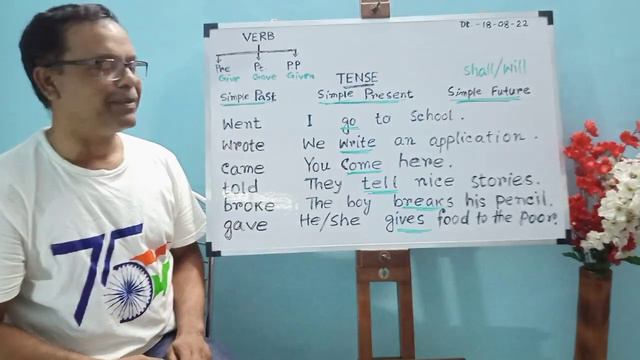 VERB
Dt. -18-08-22
Pre Pt PP
Give Gave Given
TENSE
shall/will
Simple Past Simple Present Simple Future
Went I go to School.
Wrote We Write an application.
Came You Come here.
told They tell nice stories.
broke The boy breaks his pencil.
gave He/She gives food to the Poor.
75